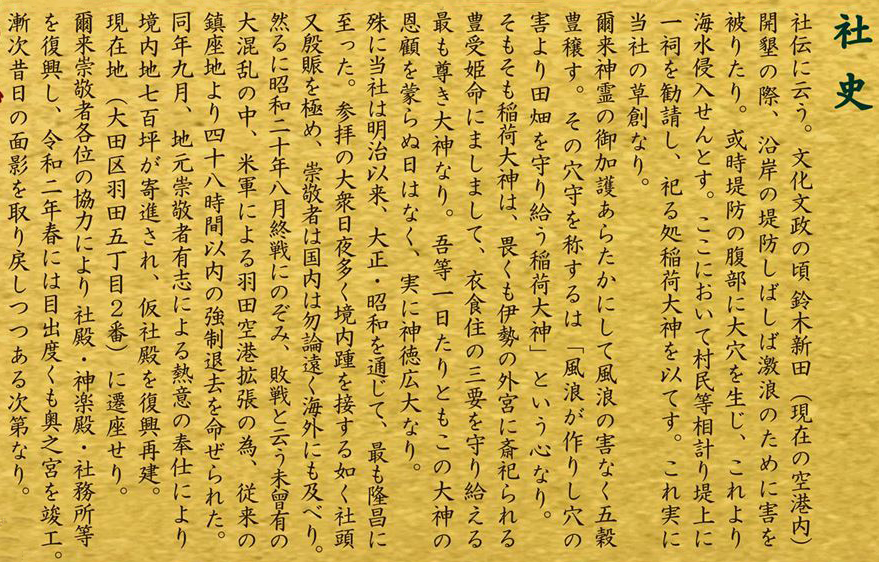 社史
社伝に云う。文化文政の頃 鈴木新田（現在の空港内）
開墾の際、沿岸の堤防しばしば激浪のために害を
被りたり。或時堤防の腹部に大穴を生じ、これより
海水侵入せんとす。ここにおいて村民等相計り堤上に
一祠を勧請し、祀る処稲荷大神を以てす。これ実に
当社の草創なり。
爾来神霊の御加護あらたかにして風浪の害なく五穀
豊穣す。その穴守を称するは「風浪が作りし穴の
害より田畑を守り給う稲荷大神」という心なり。
そもそも稲荷大神は、畏くも伊勢の外宮に斎祀られる
豊受姫命にましまして、衣食住の三要を守り給える
最も尊き大神なり。吾等一日たりともこの大神の
恩顧を蒙らぬ日はなく、実に神徳広大なり。
殊に当社は明治以来、大正・昭和を通じて、最も隆昌に
至った。参拝の大衆日夜多く境内踵を接する如く社頭
又殷賑を極め、崇敬者は国内は勿論遠く海外にも及べり。
然るに昭和二十年八月終戦にのぞみ、敗戦と云う未曾有の
大混乱の中、米軍による羽田空港拡張の為、従来の
鎮座地より四十八時間以内の強制退去を命ぜられた。
同年九月、地元崇敬者有志による熱意の奉仕により
境内地七百坪が寄進され、仮社殿を復興再建。
現在地（大田区羽田五丁目2番）に遷座せり。
爾来崇敬者各位の協力により 社殿・神楽殿・社務所等
を復興し、令和二年春には目出度くも奥之宮を竣工。
漸次昔日の面影を取り戻しつつある次第なり。